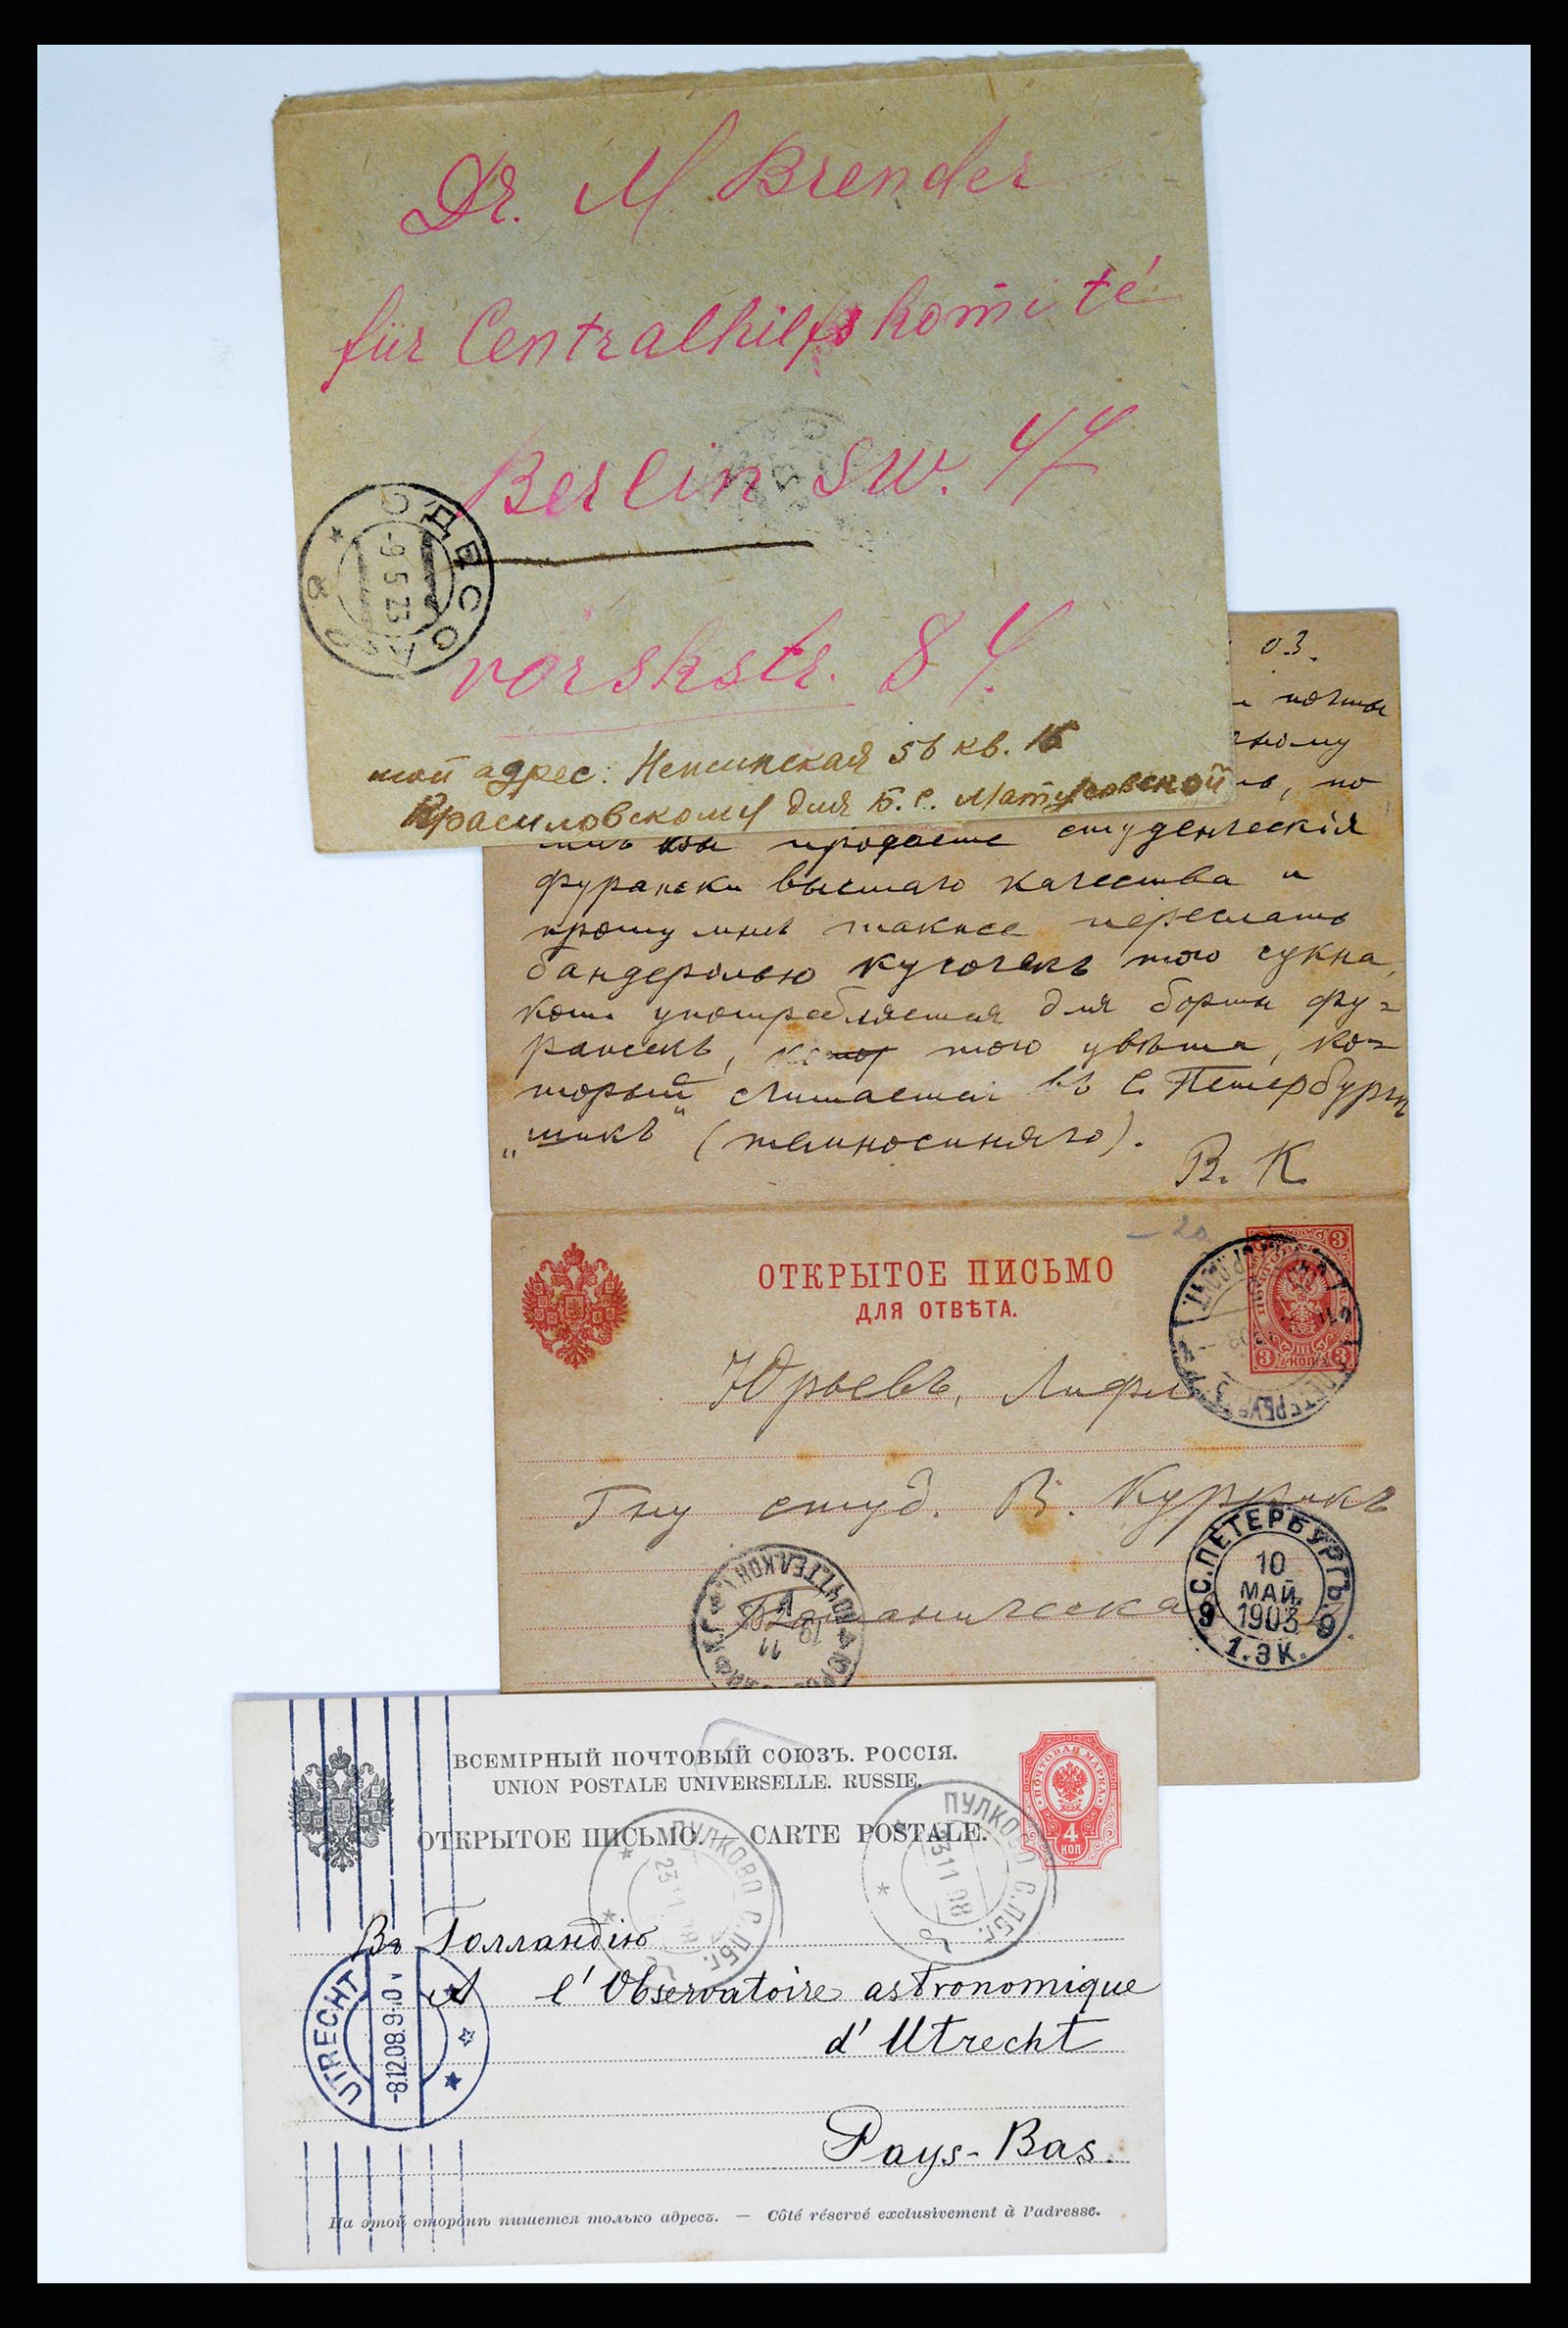 Dr. M Brender
für Centralhilfskomité
Berlin SW. 47
ОДЕССА
-9 5 23
vorskstr. 84.
мой адрес: Нежинская 56 кв. 15
Красиловскому для Б. С. Матусовской
03.
почты
по
вы продаете студенческія
фуражки высшаго качества и
прошу мнѣ также переслать
бандеролью кусочекъ того сукна,
употребляется для борта фу=
ражекъ, того цвѣта, ко=
торый считается въ С. Петербургѣ
„шикъ“ (темносиняго).
В. К.
-20
ОТКРЫТОЕ ПИСЬМО
ДЛЯ ОТВѢТА.
3 3
3 КОП. 3
Юрьевъ, Лифл
Гну студ. В. Куррикъ
С.ПЕТЕРБУРГЪ
10
МАЙ.
1903
9 9
1.ЭК.
Ботаническая
ВСЕМІРНЫЙ ПОЧТОВЫЙ СОЮЗЪ. РОССІЯ.
UNION POSTALE UNIVERSELLE. RUSSIE.
ОТКРЫТОЕ ПИСЬМО. — CARTE POSTALE.
ПОЧТОВАЯ МАРКА
4
КОП
ПУЛКОВО С.ПБГ.
23 11 08
ПУЛКОВО С.ПБГ.
23 11 08
Въ Голландію
A l'Observatoire astronomique
d'Utrecht
UTRECHT
-8.12.08.9-10V
Pays-Bas.
На этой сторонѣ пишется только адресъ. — Côté réservé exclusivement à l'adresse.